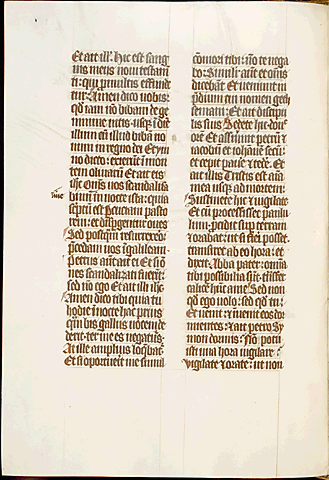 Et ait ill'. Hic est sang
uis meus noui testam
ti: qui p multis effunde
tur. Amen dico uobis:
qd iam no bibam de ge
nimine uitis: usq; i die
illum cu illud biba no
uum in regno dei. Et ym
no dicto: exierut i mon
tem oliuaru. Et ait eis
ihc. Oms uos scandaliza
bimi in nocte ista: quia
scptu est. Percutiam pasto
rem: et dispergentur oues
Sed postqm resurrexero:
pcedam uos i galileam.
Petrus aut ait ei. Et si o
nes scandalizati fuerit:
sed no ego. Et ait illi ihc.
Amen dico tibi quia tu
hodie i nocte hac prius
qm bis gallus uocem de
derit: ter me es negatus.
At ille amplius loqbat.
Et si oportuerit me simul
comori tibi: no te nega
bo. Similit aute et oms
dicebat. Et ueniunt in
pdium cui nomen geth
semani. Et ait discipu
lis suis. Sedete hic don
ore. Et assumit petru &
iacobu et iohane secu:
et cepit pauere & tede. Et
ait illis. Tristis est ani
ma mea usq; ad mortem:
Sustinete hic & uigilate.
Et cu processisset paulu
lum: pcidit sup terram
& orabat: ut si fieri posset
transiret ab eo hora: et
dixit. Abba pater: omia
tibi possibilia sut: trasfer
calice huc a me. Sed non
qd ego uolo: sed qd tu:
Et uenit & inuenit eos dor
mientes. & ait petro. Sy
mon dormis: No potu
isti una hora uigilare:
Vigilate & orate: ut non